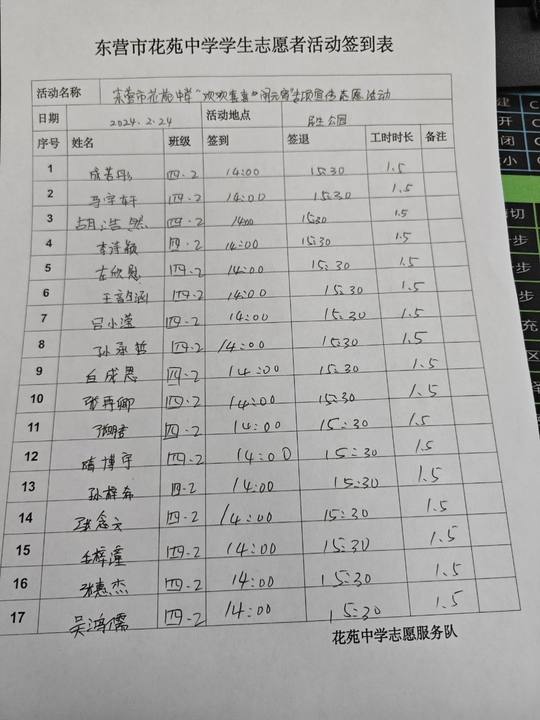 东营市花苑中学学生志愿者活动签到表
活动名称 东营市花苑中学"欢欢喜喜闹元宵"专项宣传志愿活动
日期 2024.2.24 活动地点 民生公园
序号 姓名 班级 签到 签退 工时时长 备注
1 四.2 14:00 15:30 1.5
2 马宇轩 四.2 14:00 15:30 1.5
3 胡浩然 四.2 14:00 15:30 1.5
4 李泽颖 四.2 14:00 15:30 1.5
5 左欣慰 四.2 14:00 15:30 1.5
6 王韵涵 四.2 14:00 15:30 1.5
7 吕小滢 四.2 14:00 15:30 1.5
8 孙承哲 四.2 14:00 15:30 1.5
9 白成恩 四.2 14:00 15:30 1.5
10 张再卿 四.2 14:00 15:30 1.5
11 四.2 14:00 15:30 1.5
12 隋博宇 四.2 14:00 15:30 1.5
13 孙梓希 四.2 14:00 15:30 1.5
14 张念文 四.2 14:00 15:30 1.5
15 王梓潼 四.2 14:00 15:30 1.5
16 张惠杰 四.2 14:00 15:30 1.5
17 吴鸿儒 四.2 14:00 15:30 1.5
花苑中学志愿服务队